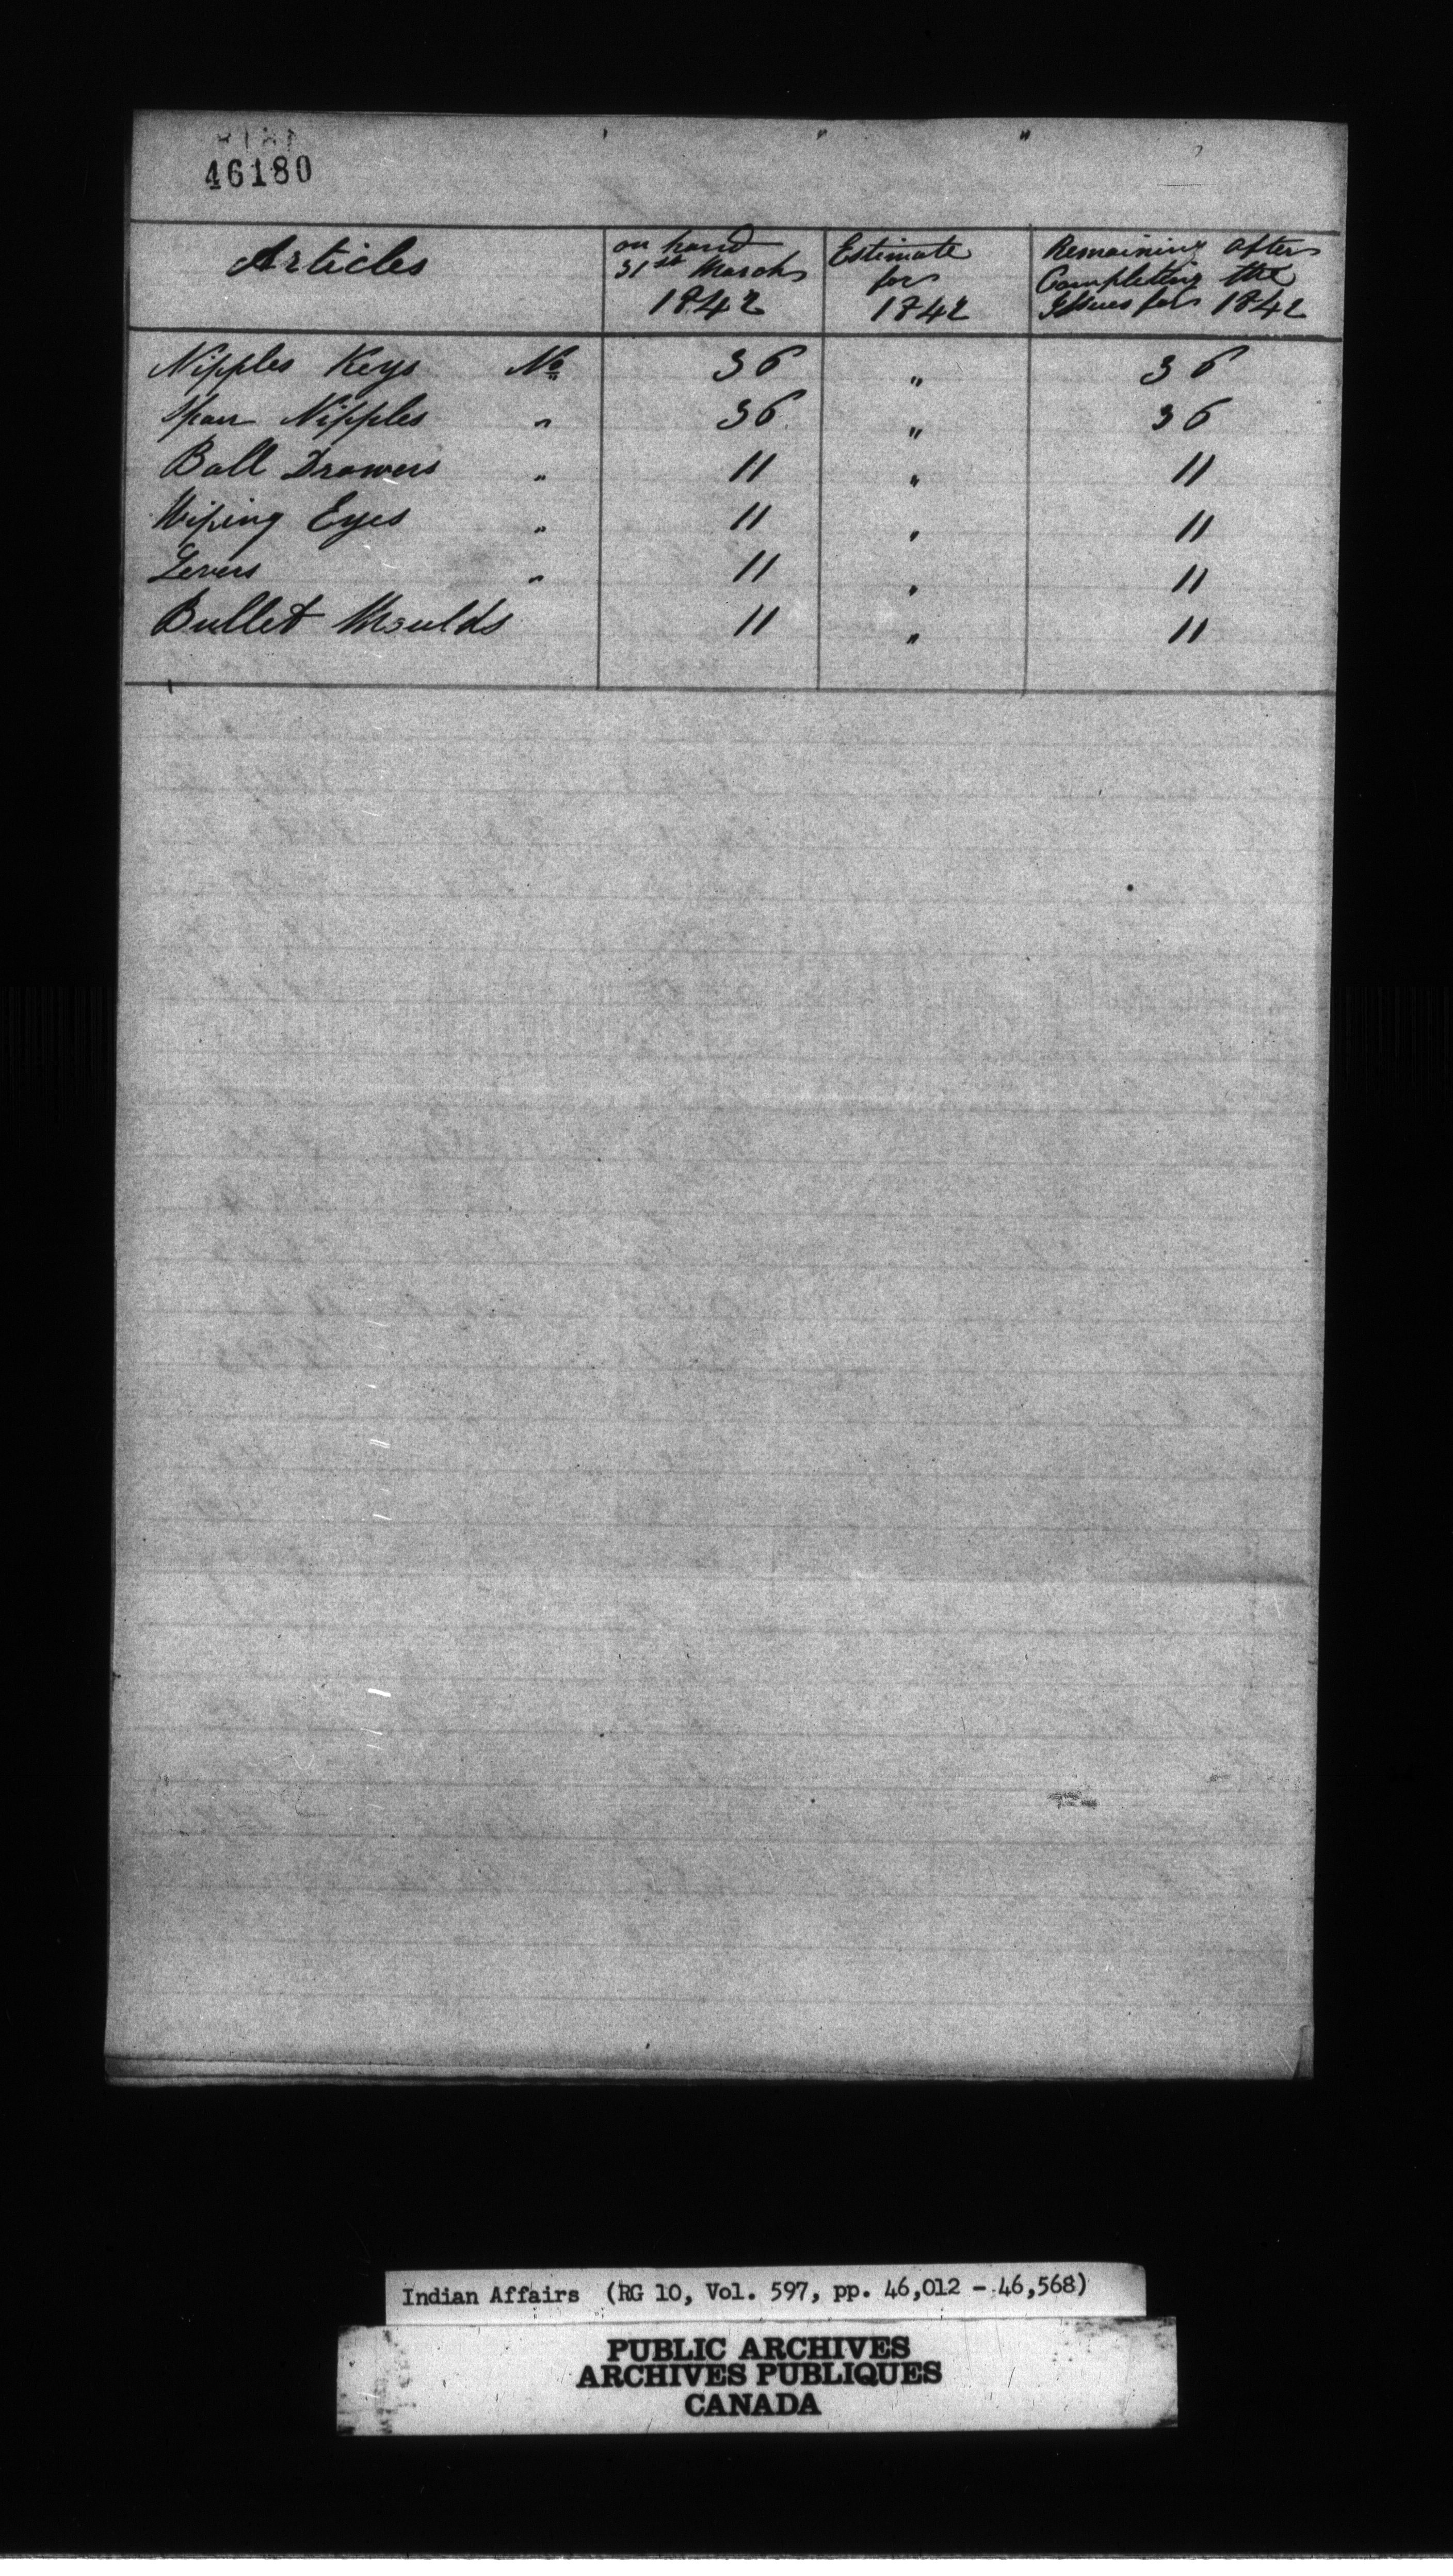 46180
Articles | on hand 31st March 1842 | Estimate for 1842 | Remaining after Completing the Issues for 1842
Nipples Keys No | 36 | " | 36
Spare Nipples " | 36 | " | 36
Ball Drawers " | 11 | " | 11
Wiping Eyes " | 11 | " | 11
Levers " | 11 | " | 11
Bullet Moulds | 11 | " | 11
Indian Affairs (RG 10, Vol. 597, pp. 46,012 - 46,568)
PUBLIC ARCHIVES
ARCHIVES PUBLIQUES
CANADA